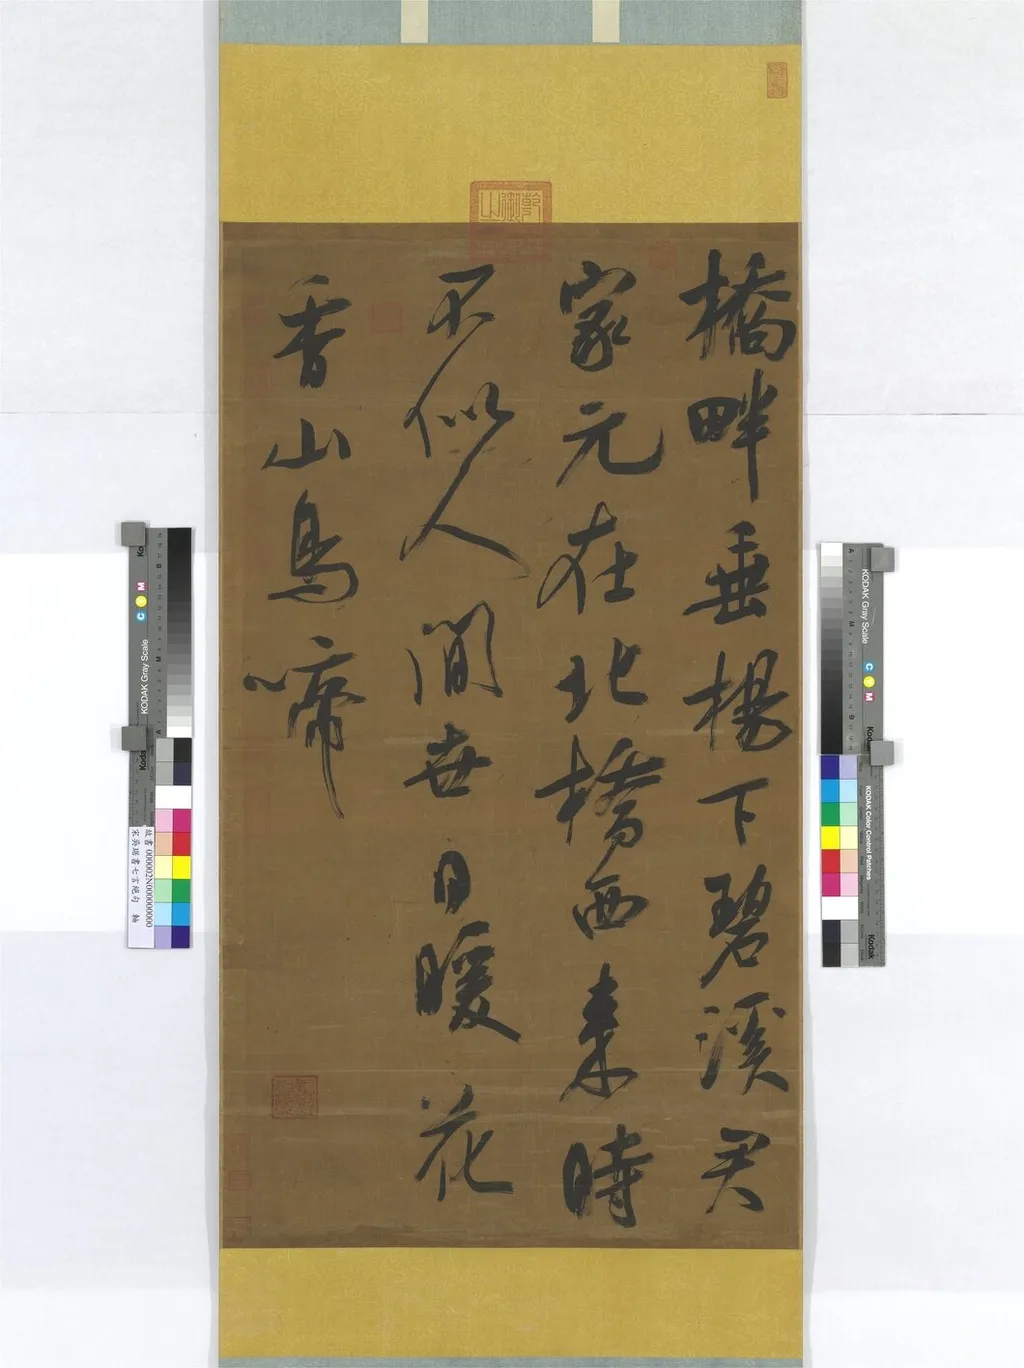 橋畔垂楊下碧溪君
家元在北橋西来時
不似人間世日暖花
香山鳥啼
故書000002N000000000
宋吳琚書七言絕句 軸
KODAK Gray Scale
Kodak
KODAK Gray Scale
KODAK Color Control Patches
Kodak